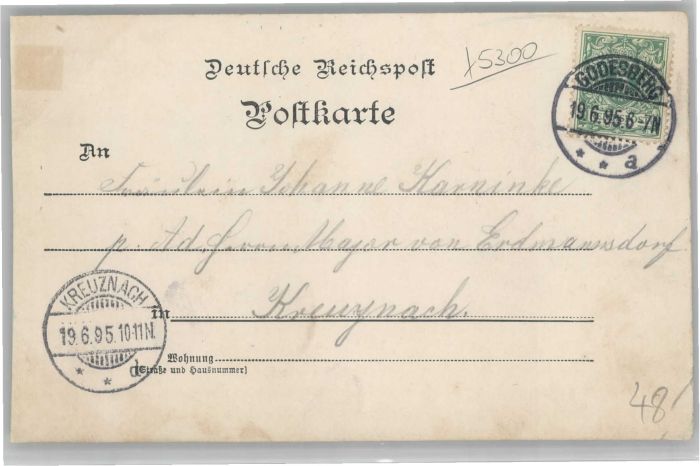 Deutsche Reichspost
x5300
Postkarte
GODESBERG
19.6.95.6-7N
* * a
An
Fräulein Johanne Karninke
p. Ad. Herrn Major von Erdmannsdorf
in Kreuznach.
KREUZNACH
19.6.95.10-11N.
* * d
Wohnung
(Straße und Hausnummer)
48